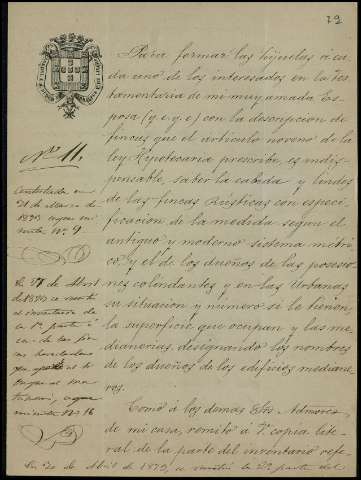 72
Para formar las hijuelas á ca-
da uno de los interesados en la tes-
tamentaria de mi muy amada Es-
posa (q. e. g. e) con la descripcion de
fincas que el artículo noveno de la
ley Hipotecaria prescribe, es indis-
pensable, saber la cabida y lindes
de las fincas Rústicas con especi-
ficacion de la medida segun el
antiguo y moderno sistema métri-
co y el de los dueños de las posesio-
nes colindantes y en las Urbanas
su situacion y número si le tienen,
la superficie que ocupan y las me-
dianerias, designando los nombres
de los dueños de los edificios mediane-
ros.
Como á los demas Sres. Admores
de mi casa, remito á V. copia lite-
ral de la parte del inventario refe-
Nº 11.
Contestada en
21 de Marzo de
1879 segun mi-
nuta nº 9
En 27 de Abril
de 1879 se remitió
el inventario de
la 1ª parte
segun
minuta nº 16
En 20 de Abril de 1879, se remitió la 2ª parte del